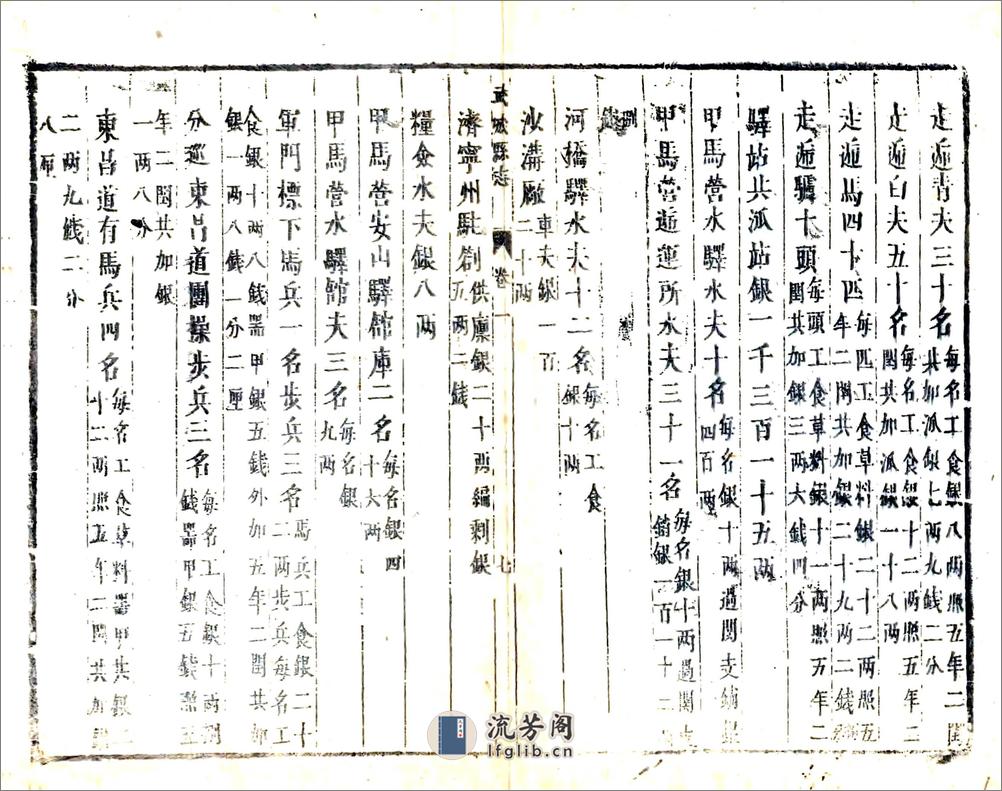 走遞青夫三十名每名工食銀八兩照五年二閏共加派銀七兩九錢二分
走遞白夫五十名每名工食銀十二兩照五年二閏共加派銀一十八兩
走遞馬四十四每四工食草料銀二十二兩照五年二閏共加銀二十九兩二錢
走遞驢十頭每頭工食草料銀十一兩照五年二閏共加銀三兩六錢四分
驛站共派站銀一千三百一十五兩
甲馬營水驛水夫十名每名銀十兩遇閏支銷銀四百兩
甲馬營遞運所水夫三十一名每名銀十兩遇閏銀一百一十三
河橋驛水夫十二名每名工食銀十兩
沙溝廠車夫銀一百二十兩
武城縣志 卷一 七
濟寧州駐劄供廩銀二十兩編剩銀五兩二錢
糧僉水夫銀八兩
甲馬營安山驛館庫二名每名銀四十六兩
甲馬營水驛館夫三名每名銀九兩
軍門標下馬兵一名步兵三名馬兵工食銀二十二兩步兵每名工
食銀十兩八錢器甲銀五錢外加五年二閏共加銀一兩八錢一分二厘
分巡東昌道團操步兵三名每名工食銀十兩 錢器甲銀五錢照五
年二閏共加銀一兩八分
東昌道有馬兵四名每名工食草料器甲共銀二十二兩照五年二閏共加
二兩九錢二分
八厘
流芳阁
lfglib.cn